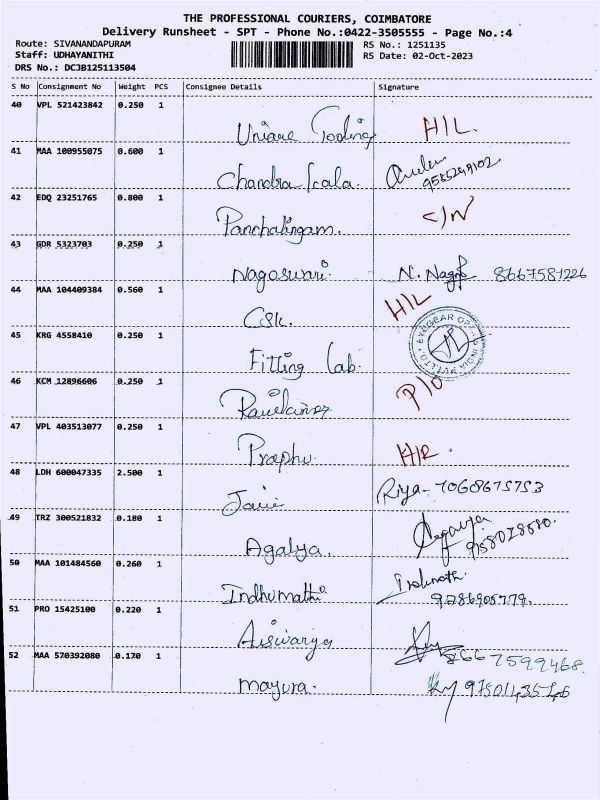 THE PROFESSIONAL COURIERS, COIMBATORE
Delivery Runsheet - SPT - Phone No.:0422-3505555 - Page No.:4
Route: SIVANANDAPURAM
RS No.: 1251135
Staff: UDHAYANITHI
RS Date: 02-Oct-2023
DRS No.: DCJB125113504
S No Consignment No Weight PCS Consignee Details Signature
40 VPL 521423842 0.250 1
Tooling H/L.
41 MAA 100955075 0.600 1
Chandra kala.
42 EDQ 23251765 0.800 1
Panchalingam.
43 GDR 5323703 0.250 1
Nagoswari N. 8667581226
44 MAA 104409384 0.560 1
H/L
45 KRG 4558410 0.250 1
Fitting Lab.
46 KCM 12896606 0.250 1
47 VPL 403513077 0.250 1
Praphu.
48 LDH 600047335 2.500 1
Riya- 7068675753
49 TRZ 300521832 0.180 1
Agalya.
50 MAA 101484560 0.260 1
Indhumathi
51 PRO 15425100 0.220 1
Aiswarya
52 MAA 570392080 0.170 1
8667599468.
mayura.